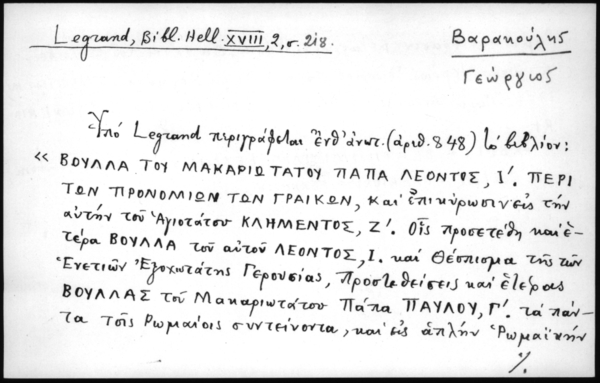 Legrand, Bibl. Hell. XVIII, 2, σ. 218.
Βαρακούλης
Γεώργιος
Ὑπό Legrand περιγράφεται ἔνθ' ἀνωτ. (ἀριθ. 848) τὸ βιβλίον:
« ΒΟΥΛΛΑ ΤΟΥ ΜΑΚΑΡΙΩΤΑΤΟΥ ΠΑΠΑ ΛΕΟΝΤΟΣ, Ι΄. ΠΕΡΙ
ΤΩΝ ΠΡΟΝΟΜΙΩΝ ΤΩΝ ΓΡΑΙΚΩΝ, καὶ ἐπικύρωσιν εἰς τὴν
αὐτὴν τοῦ Ἁγιοτάτου ΚΛΗΜΕΝΤΟΣ, Ζ΄. Οἷς προσετέθη καὶ ἑ-
τέρα ΒΟΥΛΛΑ τοῦ αὐτοῦ ΛΕΟΝΤΟΣ, Ι. καὶ Θέσπισμα τῆς τῶν
Ἐνετιῶν Ἐξοχωτάτης Γερουσίας, Προστεθείσεις καὶ ἑτέρας
ΒΟΥΛΛΑΣ τοῦ Μακαριωτάτου Πάπα ΠΑΥΛΟΥ, Γ΄. τὰ πάν-
τα τοῖς Ρωμαίοις συντείνοντα, καὶ εἰς ἁπλὴν Ῥωμαϊκὴν
./.